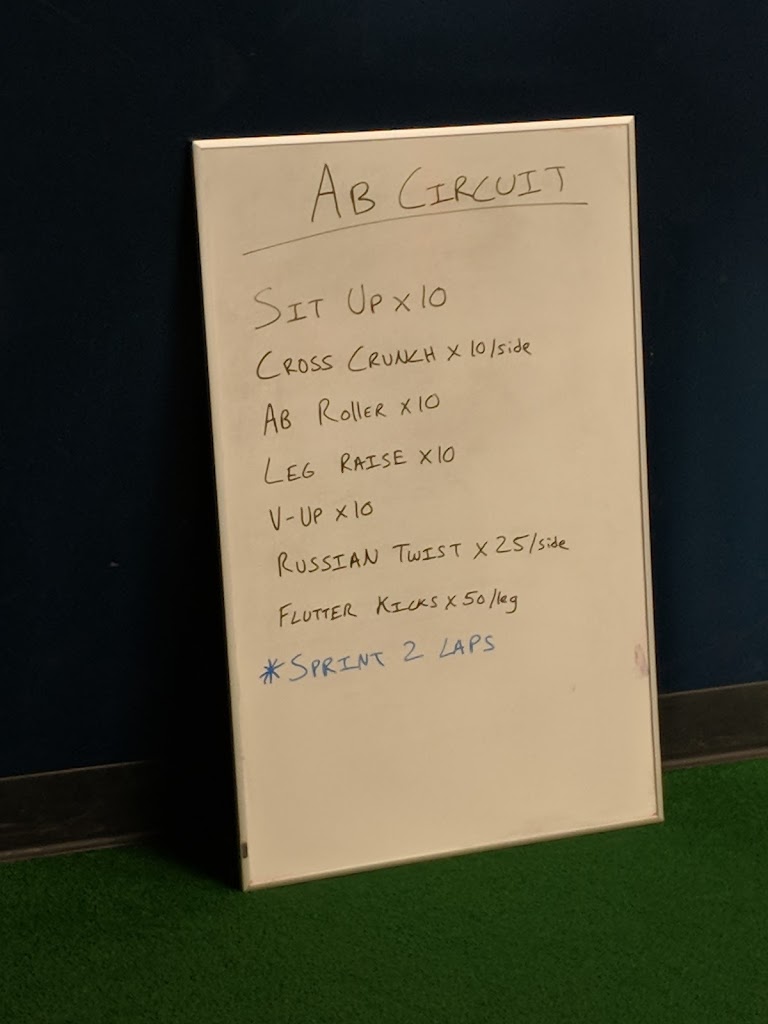 AB CIRCUIT
SIT UP x 10
CROSS CRUNCH x 10/side
AB RollER x 10
LEG RAISE x 10
V-UP x 10
RUSSIAN TWIST x 25/side
FLUTTER KICKS x 50/leg
*SPRINT 2 LAPS